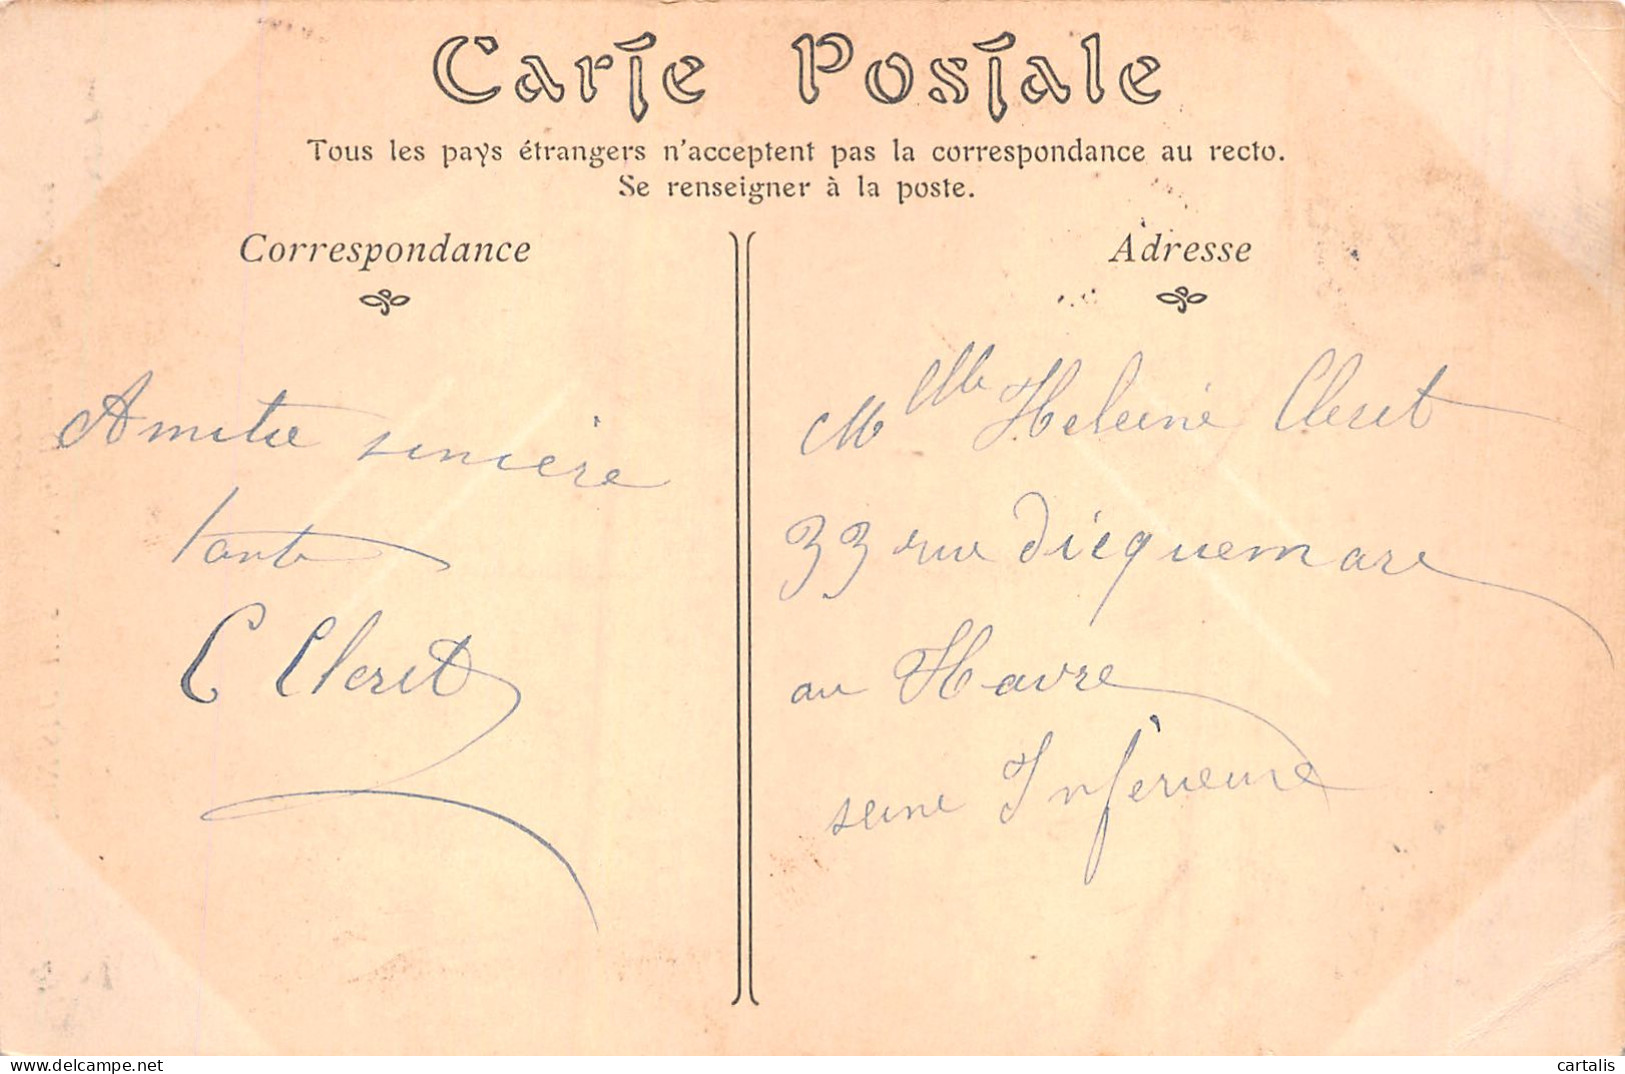 Carte Postale
Tous les pays étrangers n'acceptent pas la correspondance au recto.
Se renseigner à la poste.
Correspondance
Amitié sincère
C Cleret
Adresse
Mlle Heleine Cleret
33 rue Dicquemare
au Havre
seine Inférieure
delcampe.net
cartalis